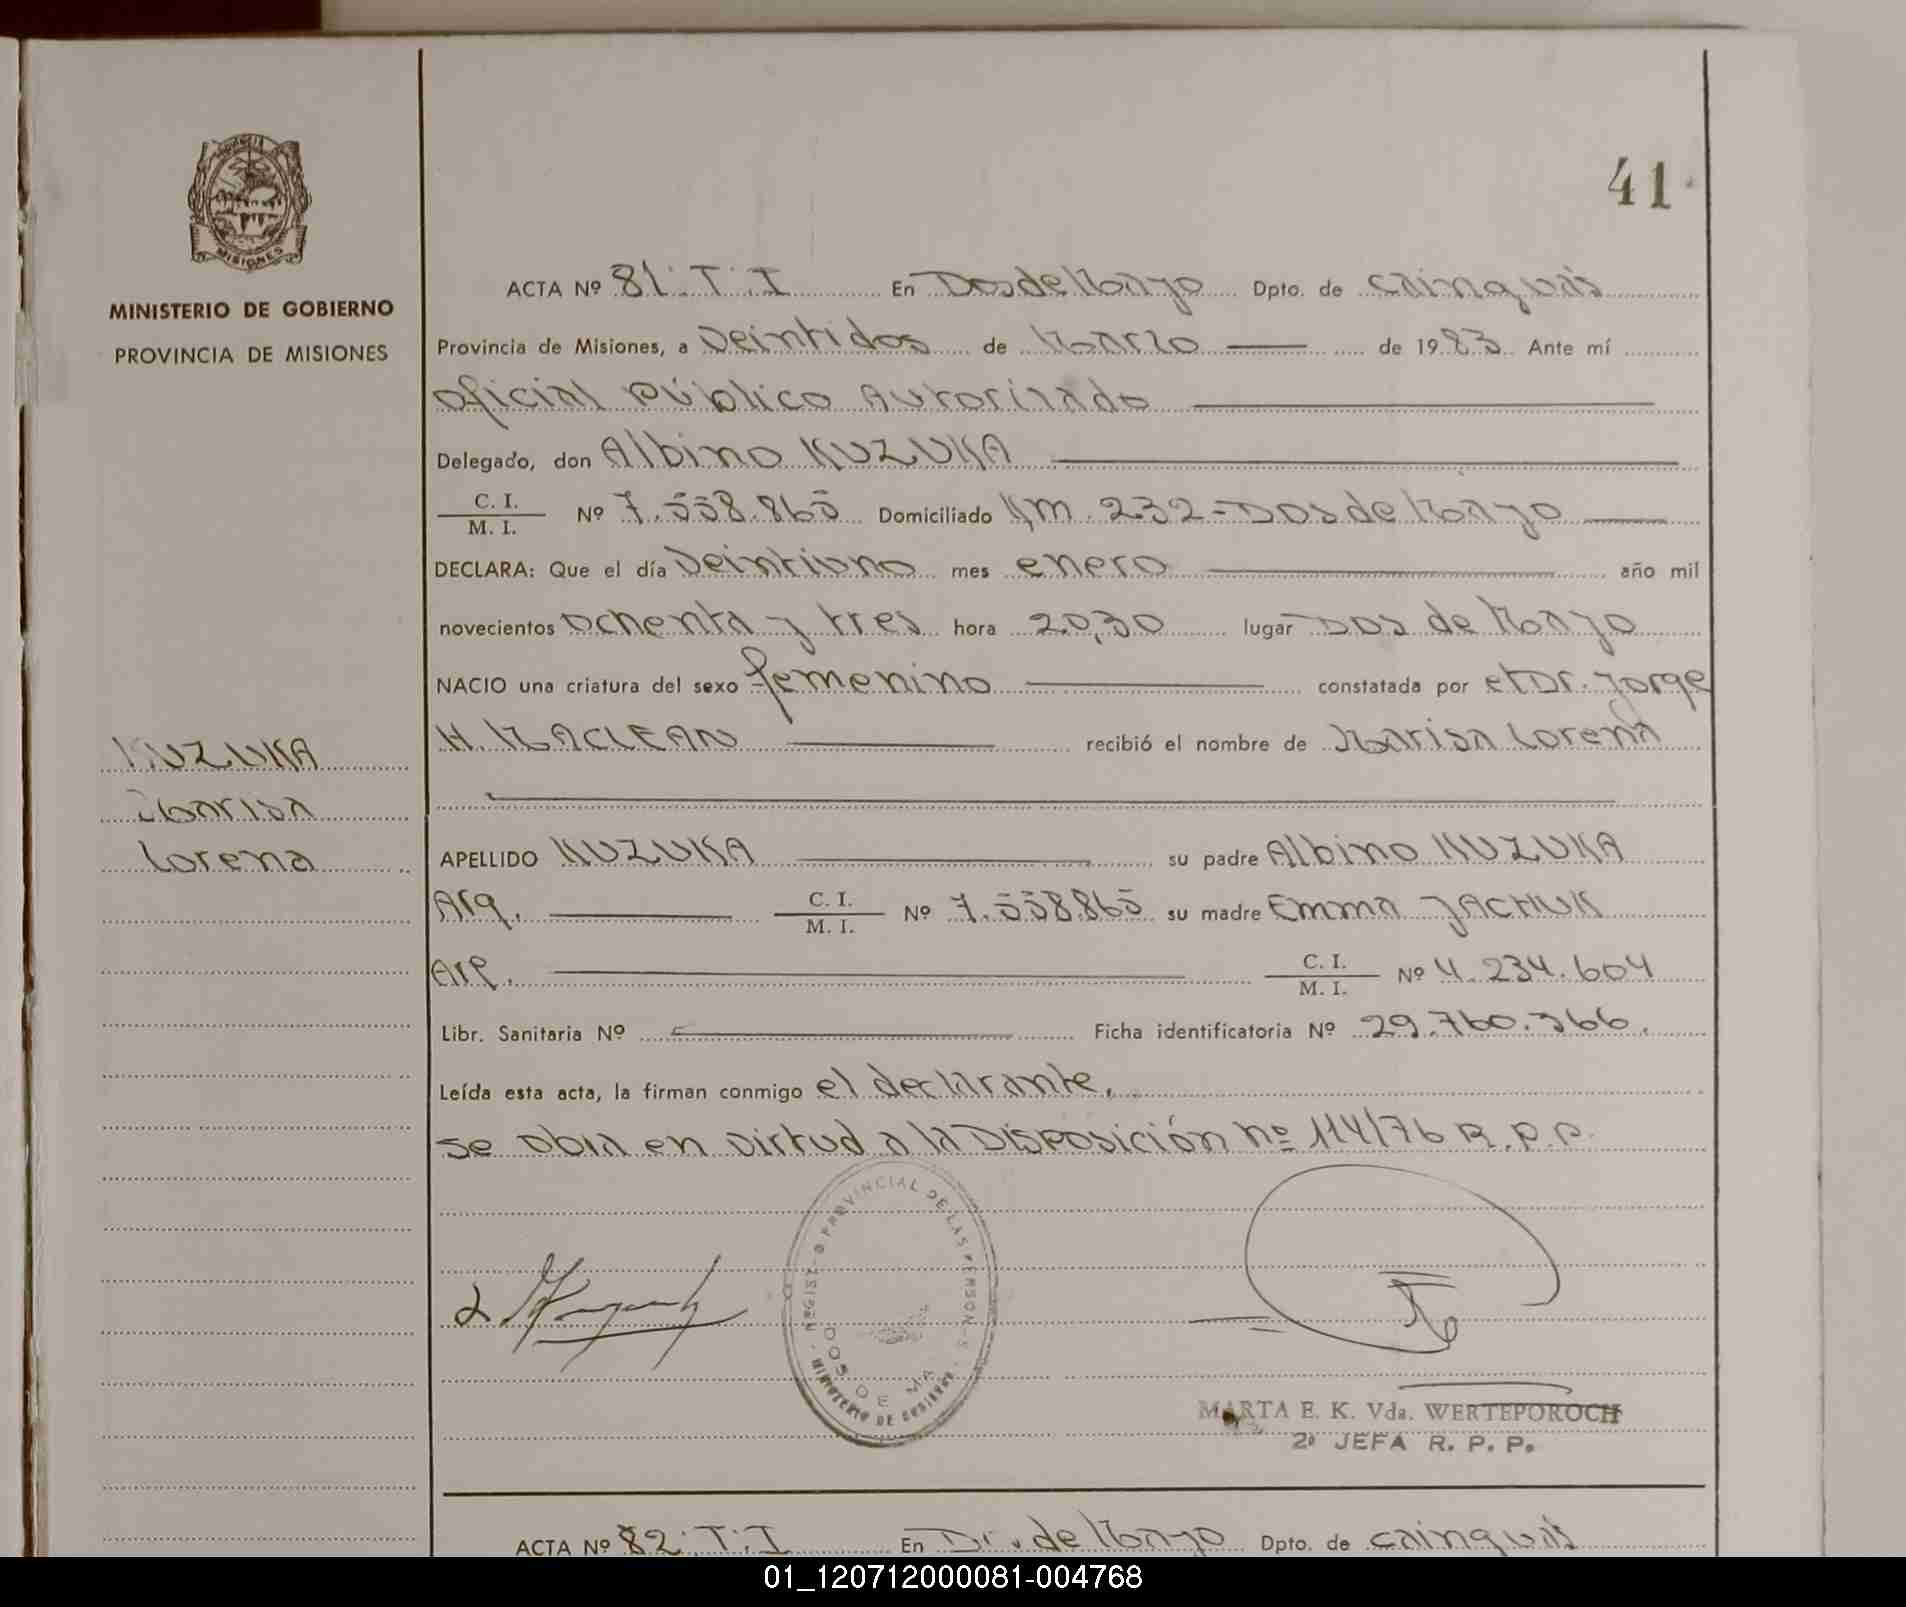 41
MINISTERIO DE GOBIERNO
PROVINCIA DE MISIONES
MISIONES
ACTA Nº 81. T. I En Dos de Mayo Dpto. de Cainguás
Provincia de Misiones, a Veintidos de Marzo de 1983 Ante mí
oficial Público Autorizado
Delegado, don Albino KUZUKA
C. I. / M. I. Nº 7.558.865 Domiciliado Km. 232 - Dos de Mayo
DECLARA: Que el día Veintiuno mes enero año mil
novecientos ochenta y tres hora 20,30 lugar Dos de Mayo
NACIO una criatura del sexo femenino constatada por el Dr. Jorge
H. MACLEAN recibió el nombre de Marisa Lorena
KUZUKA
Marisa
Lorena
APELLIDO KUZUKA su padre Albino KUZUKA
Arg. C. I. / M. I. Nº 7.558.865 su madre Emma JACHUK
Arg. C. I. / M. I. Nº 4.234.604
Libr. Sanitaria Nº Ficha identificatoria Nº 29.760.366.
Leída esta acta, la firman conmigo el declarante.
se obra en virtud a la Disposición Nº 114/76 R.P.P.
PROVINCIAL DE LAS
DOS DE MA
MARTA E. K. Vda. WERTEPOROCH
2º JEFA R. P. P.
ACTA Nº 82. T. I En Dos de Mayo Dpto. de Cainguás
01_120712000081-004768